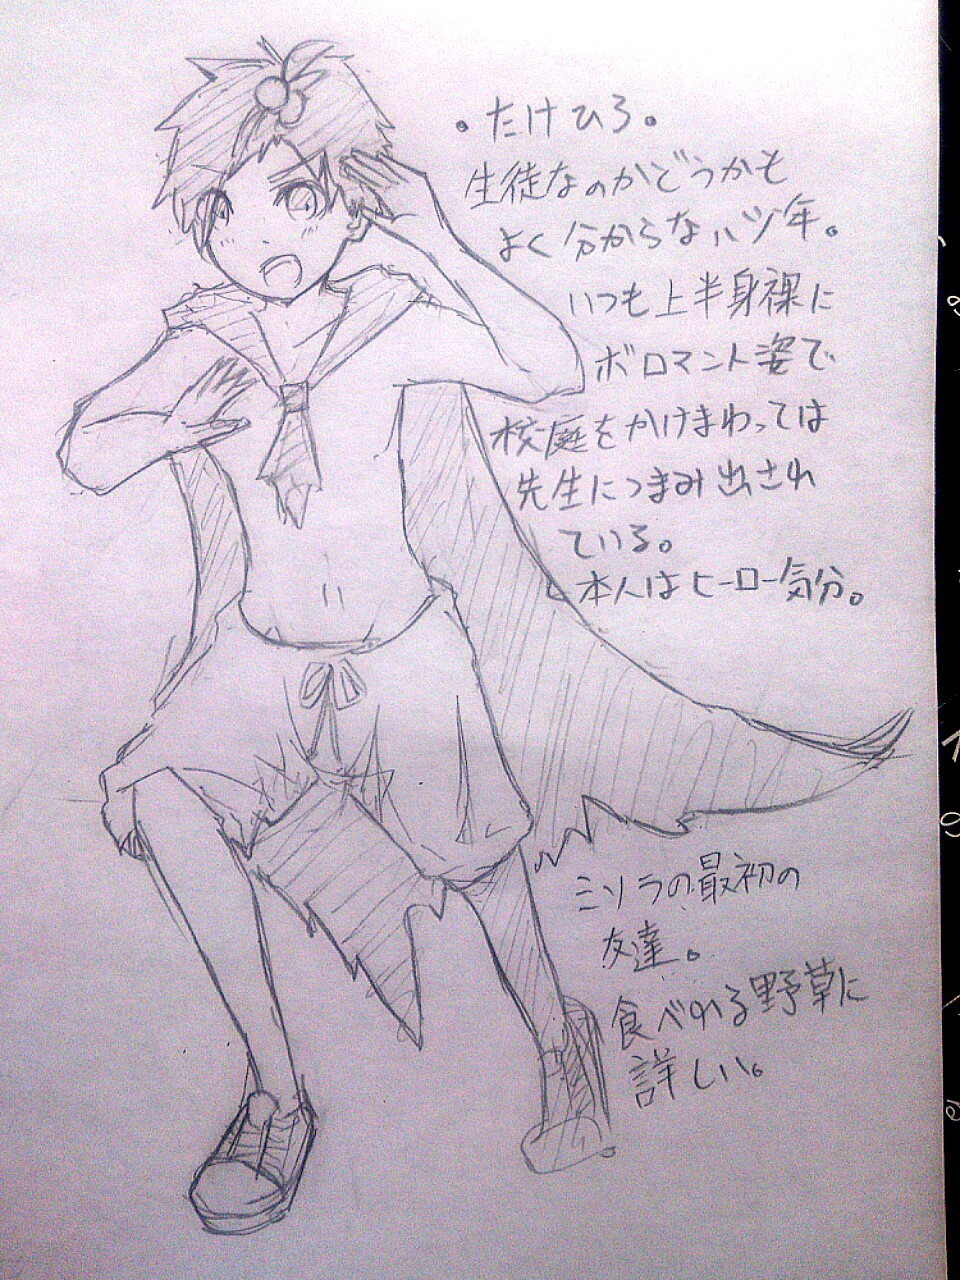 ・たけひろ。
生徒なのかどうかも
よく分からない少年。
いつも上半身裸に
ボロマント姿で
校庭をかけまわっては
先生につまみ出され
ている。
本人はヒーロー気分。
ミソラの最初の
友達。
食べれる野草に
詳しい。